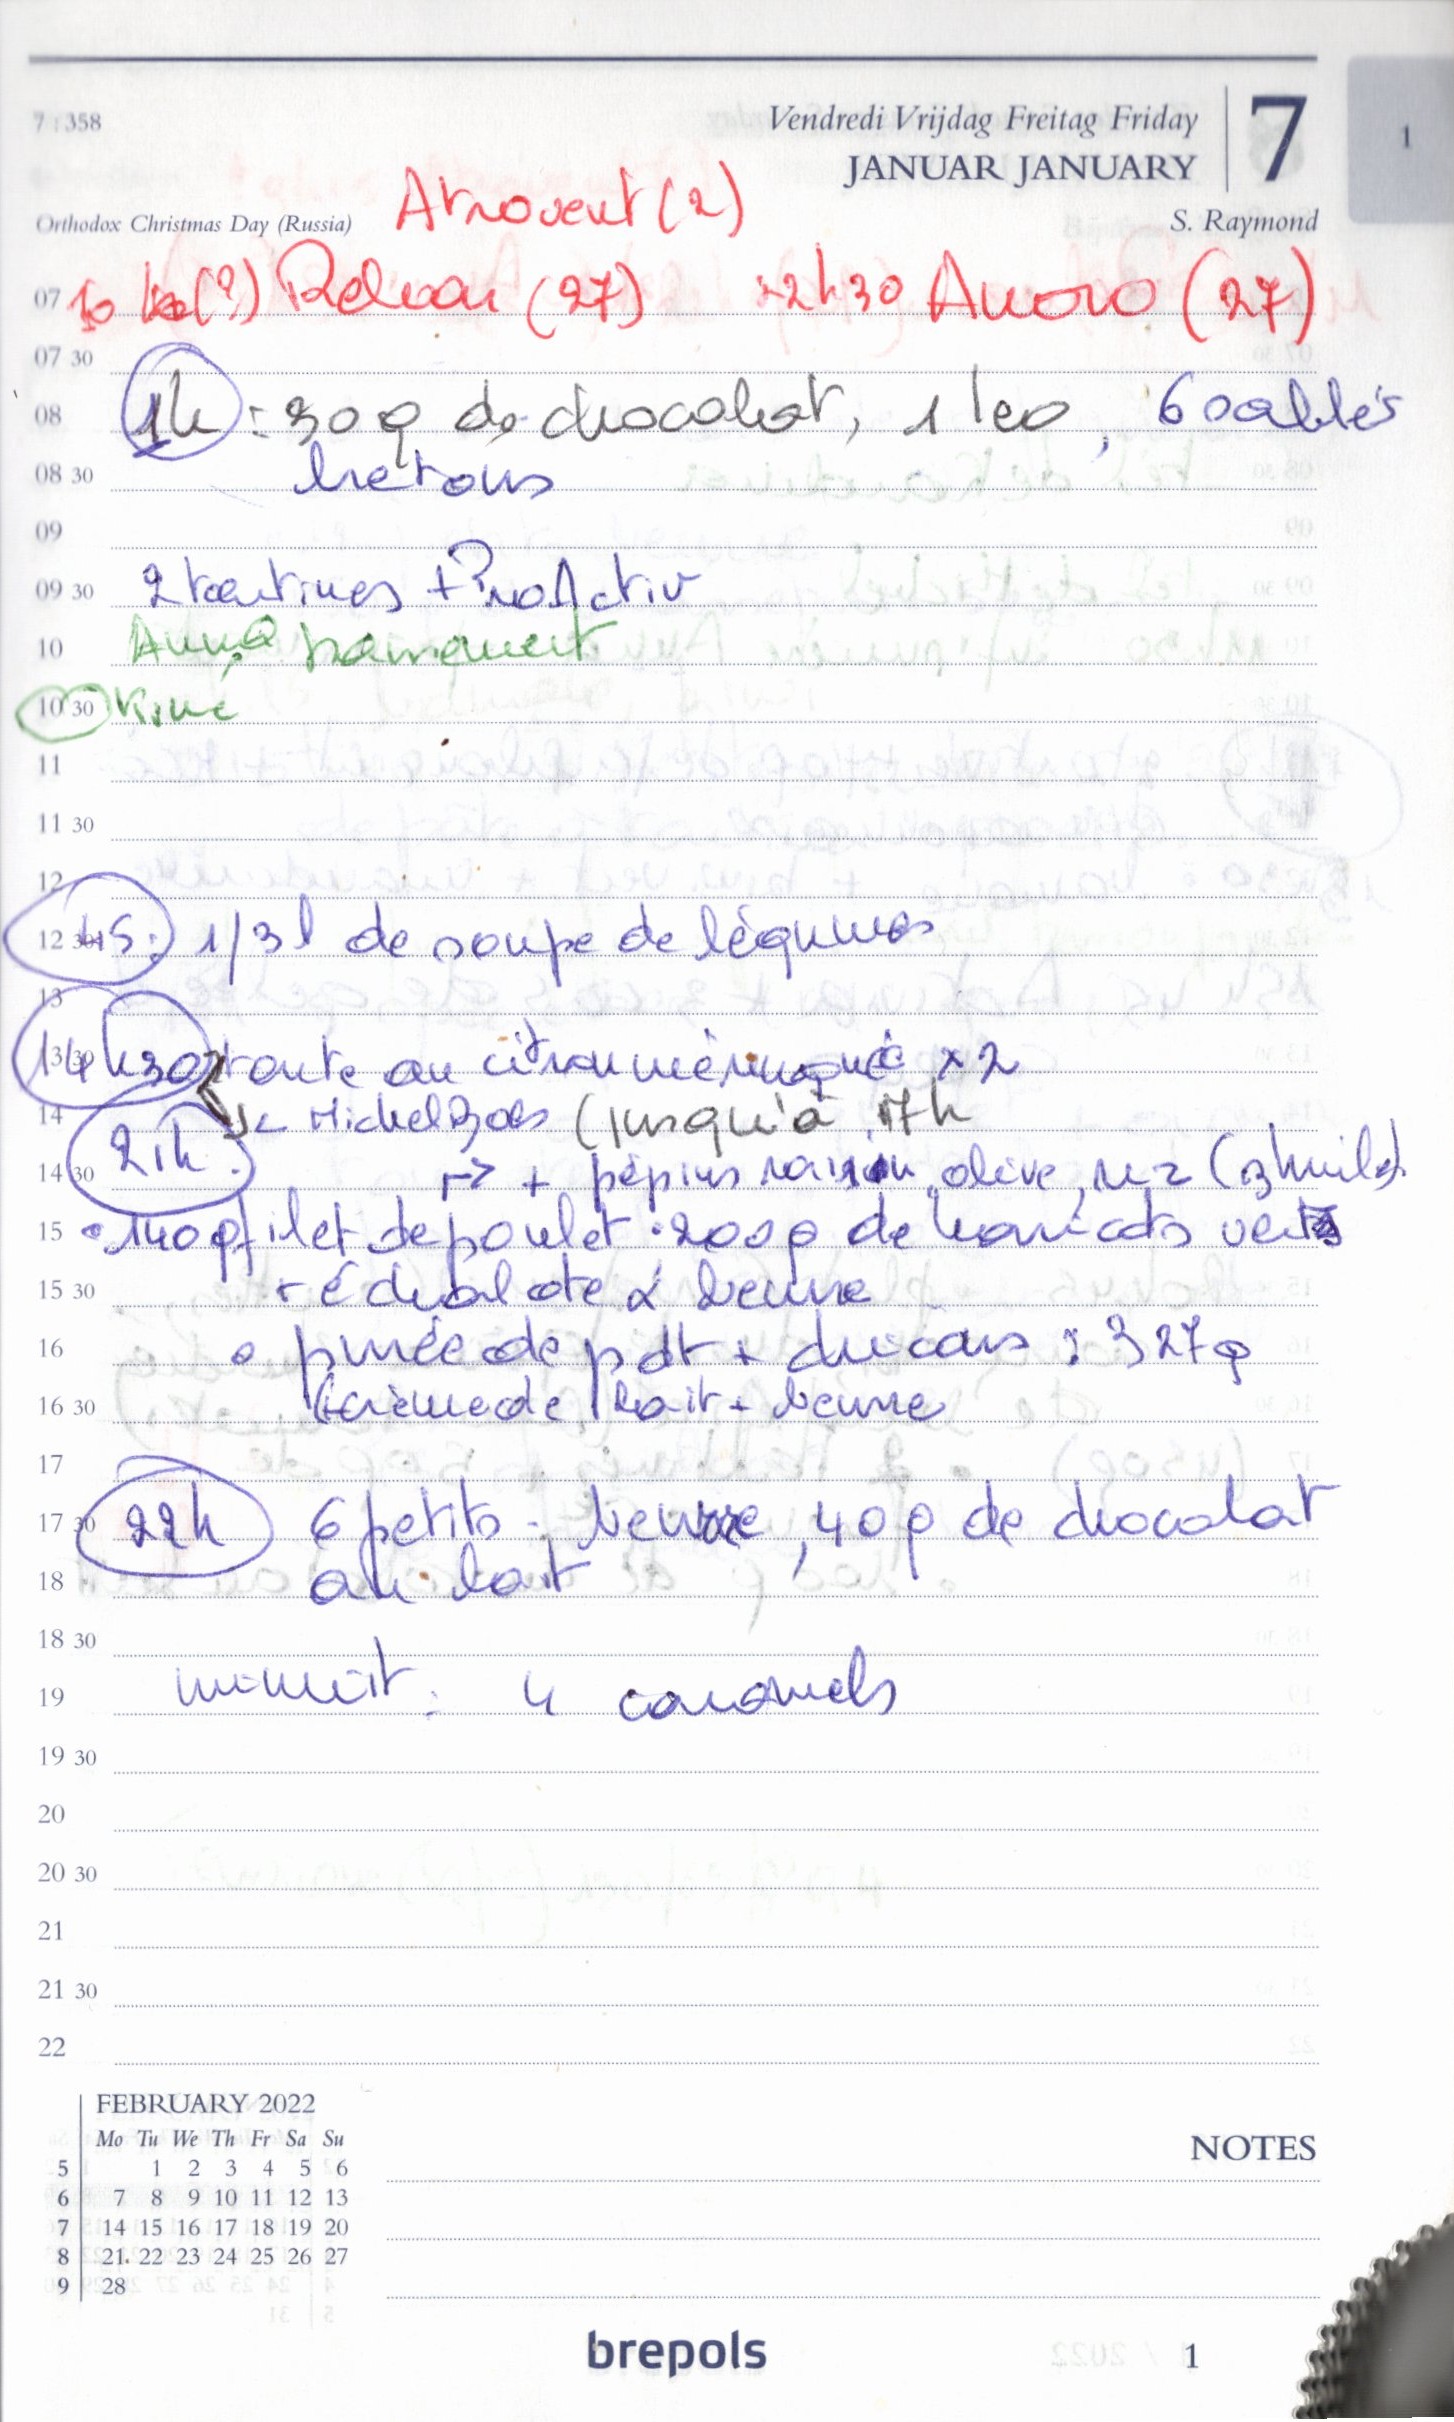 7 | 358
Vendredi Vrijdag Freitag Friday
JANUAR JANUARY
7
1
Orthodox Christmas Day (Russia)
Atrovent (2)
S. Raymond
07 10 (?) Relvar (27) 22h30 Anoro (27)
07 30
08 1h : 30g de chocolat, 1 leo, 6 sablés
08 30 bretons
09
09 30 2 tartines + ProActiv
10 pansement
10 30 Kiné
11
11 30
12
12 30 45 : 1/3 l de soupe de légumes
13
13 30 14h30 tarte au citron méringuée x2
14 Michel (jusqu'à 17h
21h :
14 30 + pépins raisin, olive, (3 huiles)
15 • 140g filet de poulet • 200g de haricots verts
15 30 + échalote & beurre
16 • purée de pdt + chicons : 327g
16 30 (crème de lait + beurre
17
17 30 22h 6 petits-beurre, 40g de chocolat
18 au lait
18 30
19 minuit : 4 caramels
19 30
20
20 30
21
21 30
22
FEBRUARY 2022
Mo Tu We Th Fr Sa Su
5 1 2 3 4 5 6
6 7 8 9 10 11 12 13
7 14 15 16 17 18 19 20
8 21 22 23 24 25 26 27
9 28
NOTES
brepols
1